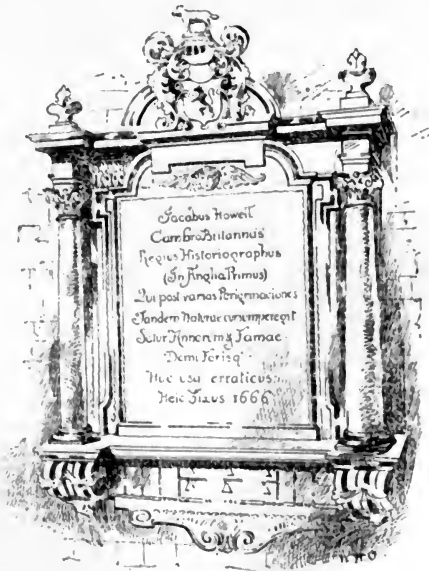 Jacobus Howell
Cambro Britannus
Regius Historiographus
(In Anglia Primus)
Qui post varias Perigrinaciones
Tandem Naturae cursum peregit
Satur Annorum & Famae
Domi Forisq
Huc usq erraticus
Heic Fixus 1666